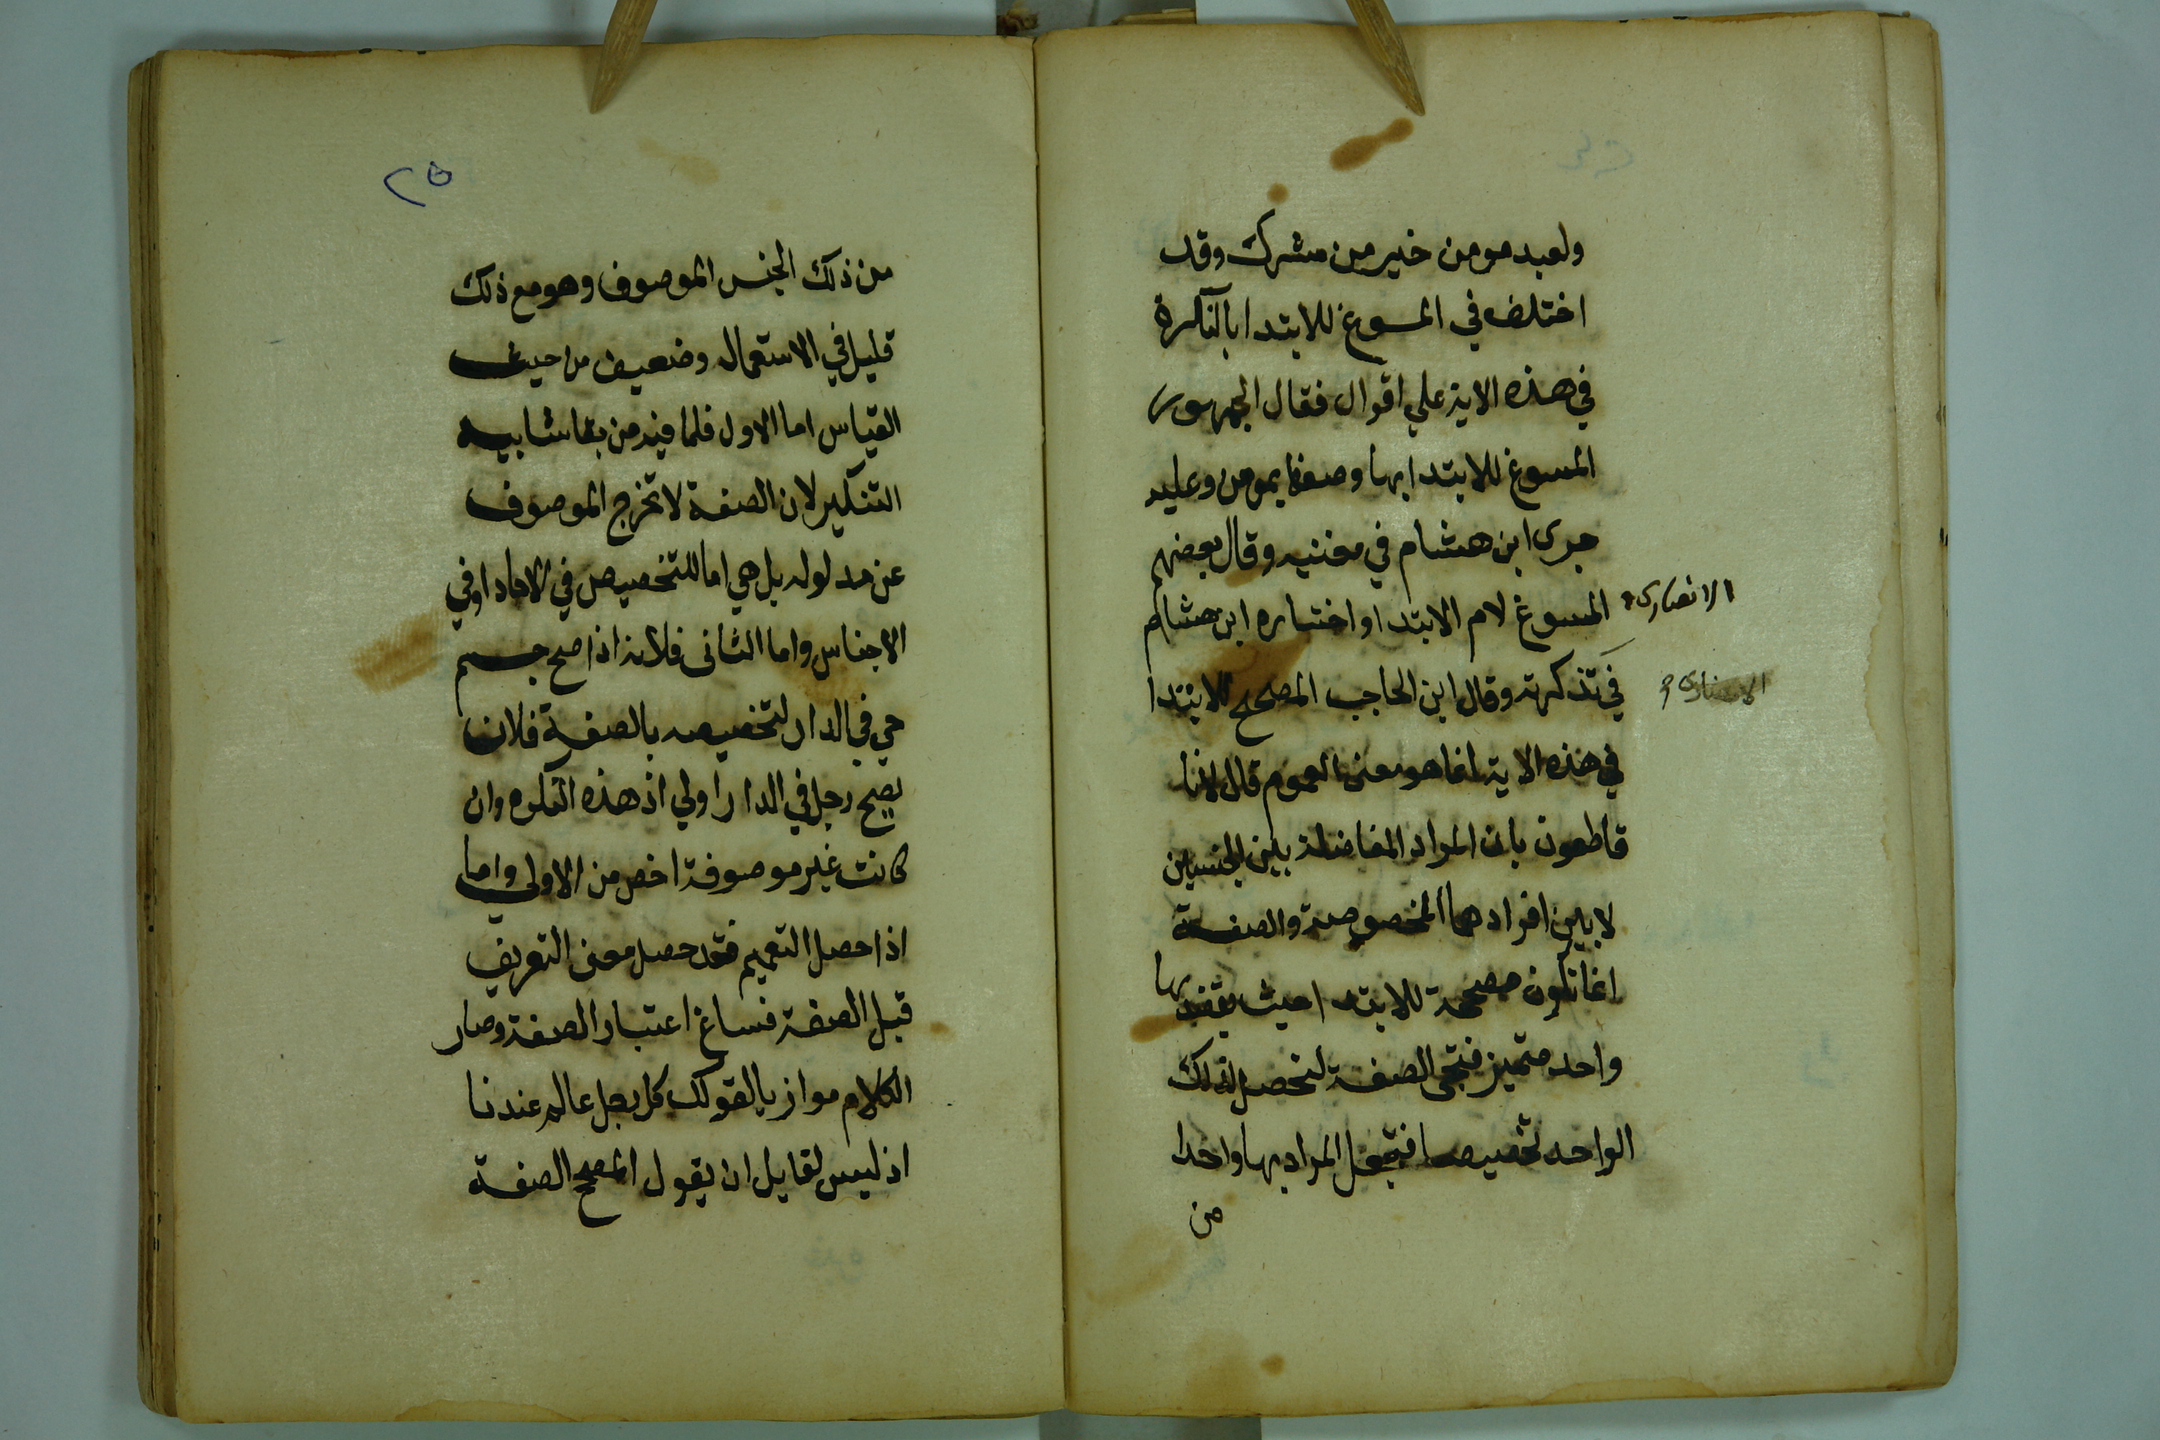 ولعبد مومن خير من مشرك وقد
اختلف في المسوغ للابتدا بالنكرة
في هذه الاية علي اقوال فقال الجمهور
المسوغ للابتدا بها وصفها بمومن وعليه
جرى ابن هشام في مغنيه وقال بعضهم
المسوغ لام الابتدا واختاره ابن هشام
الانصارى
في تذكرته وقال ابن الحاجب المصحح للابتدا
في هذه الاية انما هو معنى العموم قال لانا
قاطعون بان المراد المفاضلة بين الجنسين
لا بين افرادهما المخصوصة والصفة
انما تكون مصححة للابتدا حيث يقصد بها
واحد متميز فتجى الصفة لتحصل لذلك
الواحد تخصيصا فتجعل المراد بها واحدا
من
٢٥
من ذلك الجنس الموصوف وهو مع ذلك
قليل في الاستعمال وضعيف من حيث
القياس اما الاول فلما فيه من بقا شايبة
التنكير لان الصفة لا تخرج الموصوف
عن مدلوله بل هي اما للتخصيص في الاحاد او في
الاجناس واما الثانى فلانه اذا صح جسم
حي في الدار لتخصيصه بالصفة فلان
يصح رجل في الدار اولي اذ هذه النكره وان
كانت غير موصوفة اخص من الاولي واما
اذا حصل التعميم فقد حصل معنى التعريف
قبل الصفة فساغ اعتبار الصفة وصار
الكلام موازيا لقولك كل رجل عالم عندنا
اذ ليس لقايل ان يقول المصحح الصفة